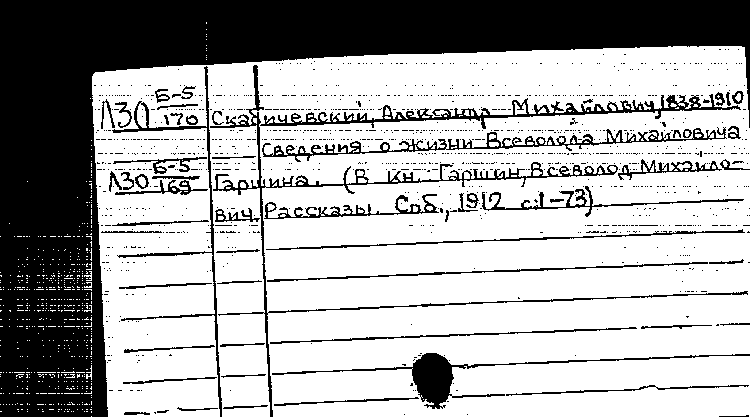 Л30 Б-5/170 Скабичевский, Александр Михайлович, 1838-1910
Сведения о жизни Всеволода Михайловича
Л30 Б-5/169 Гаршина. (В кн. Гаршин, Всеволод Михайло-
вич. Рассказы. Спб., 1912 с.1-73)